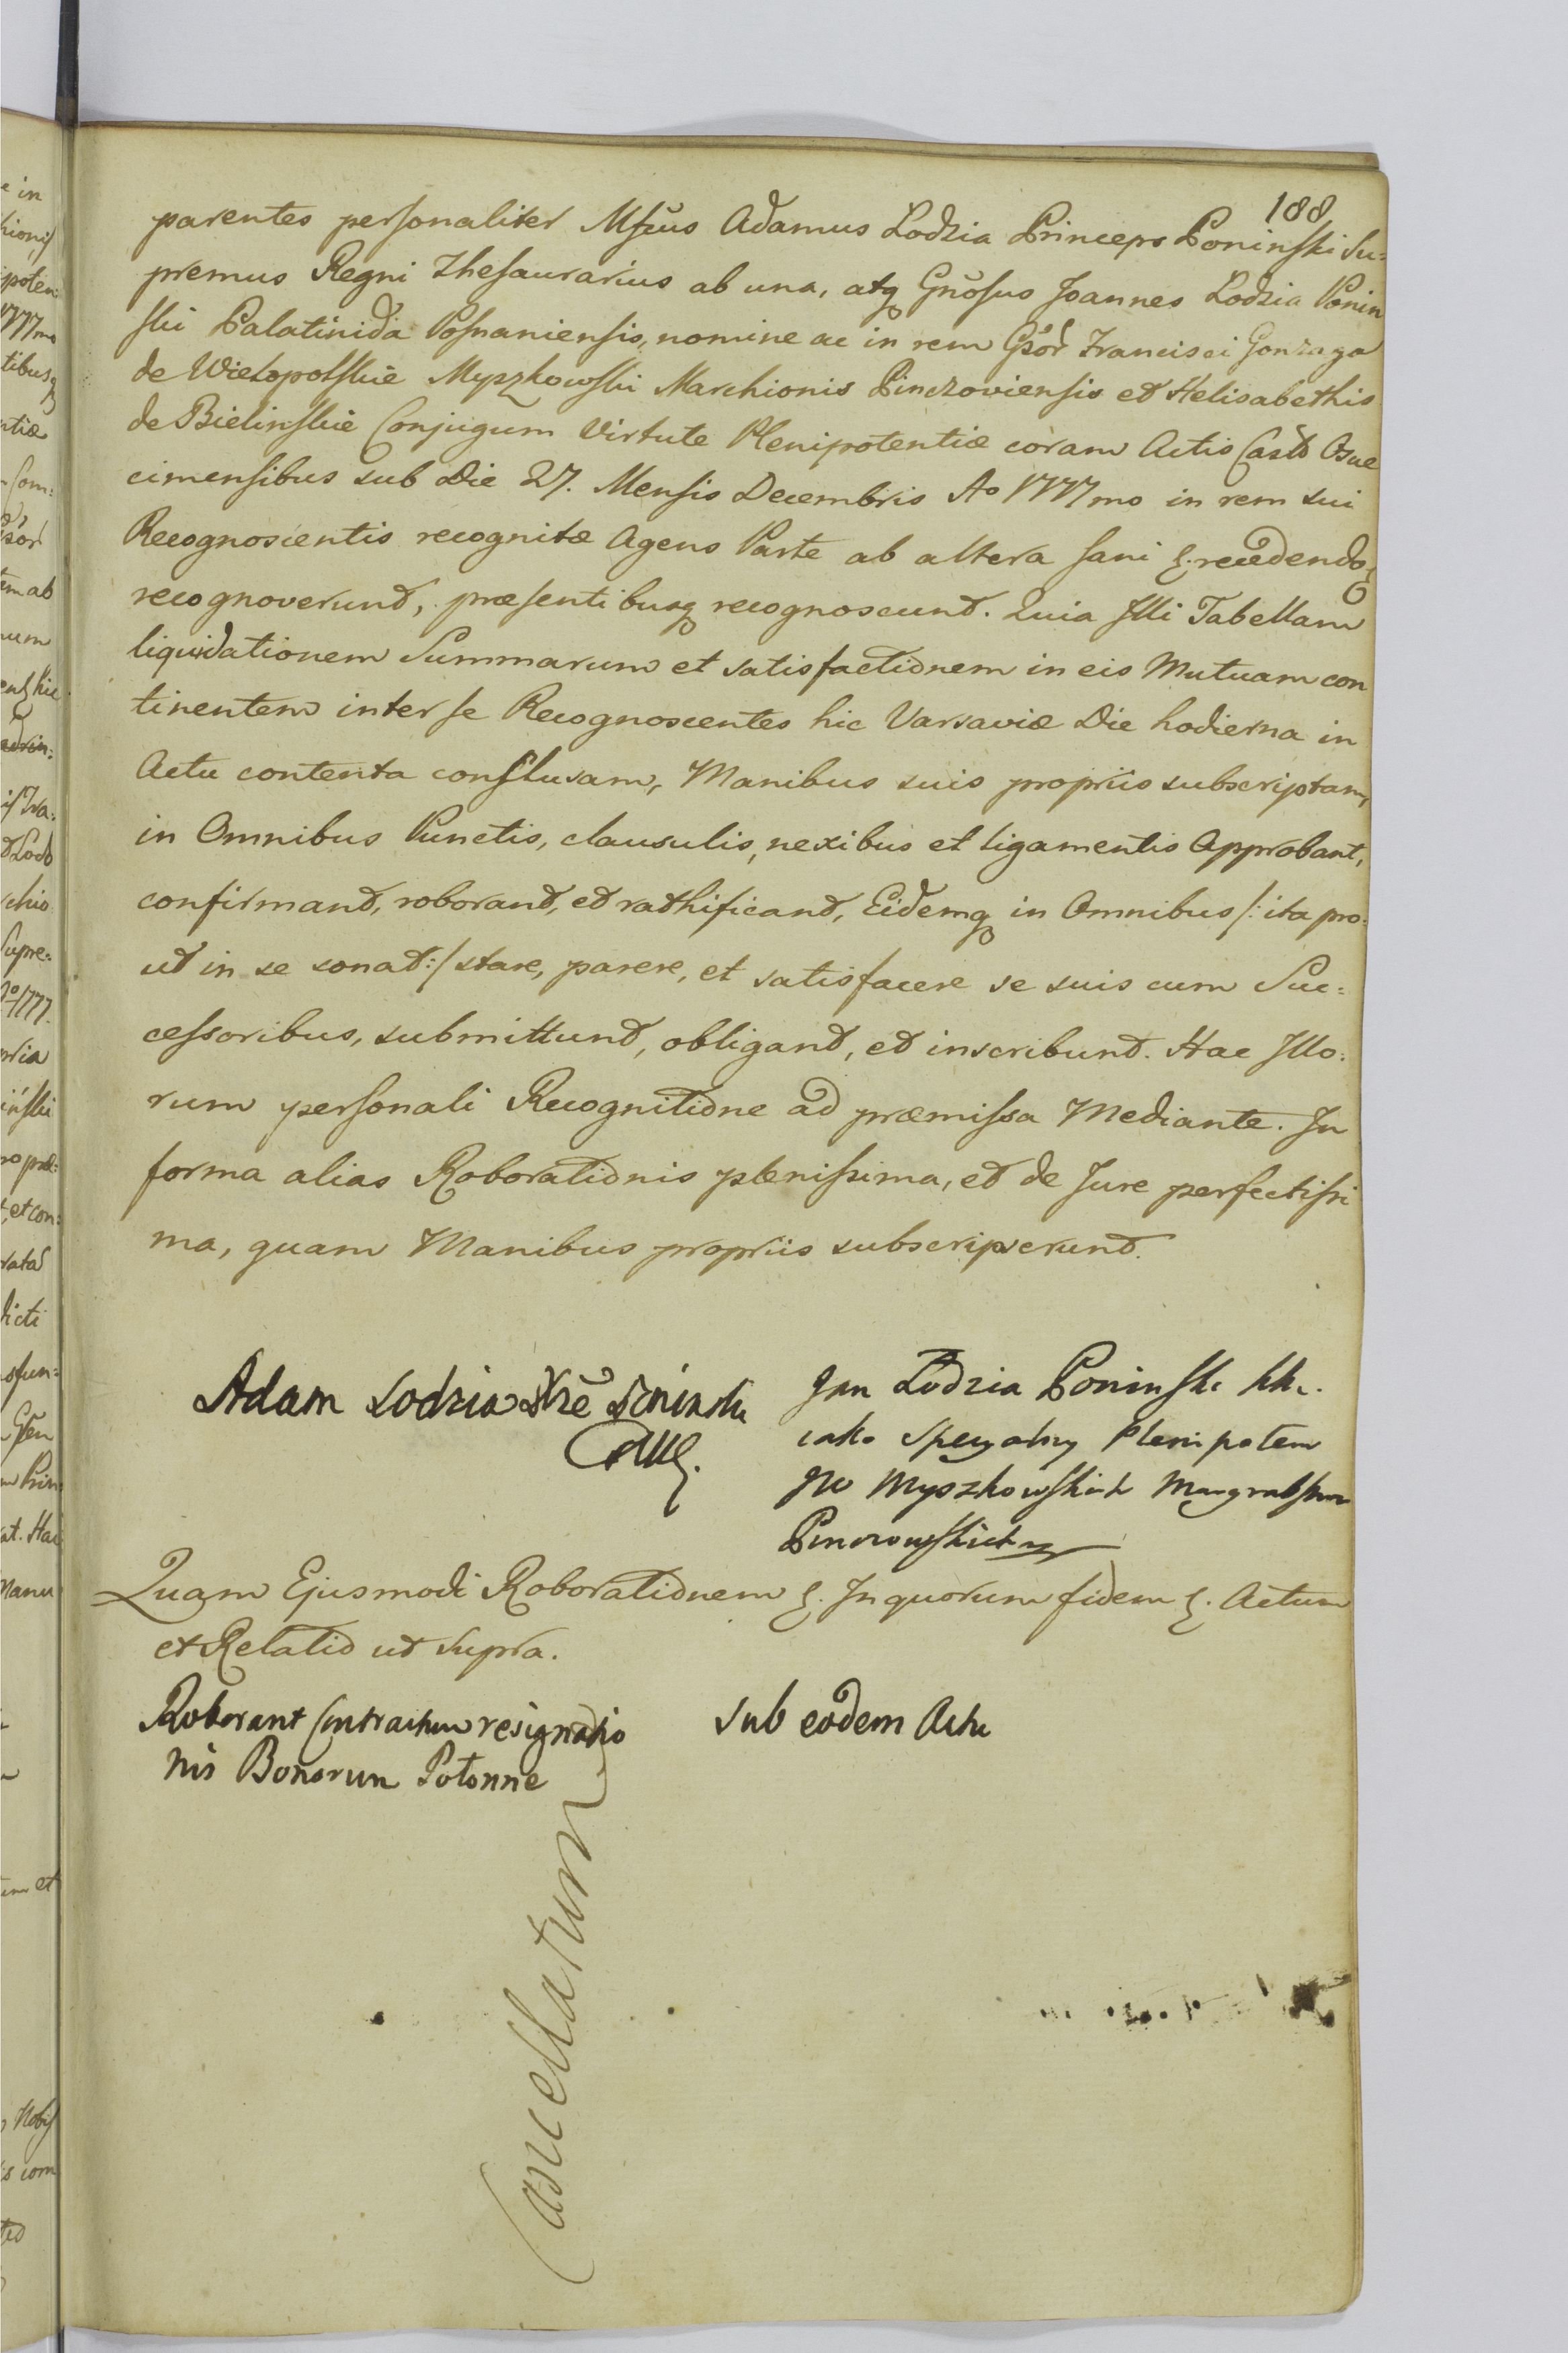 188.
parentes personaliter Mfcus Adamus Lodzia Princeps Poninski Su=
premus Regni Thesaurarius ab una, atq Gnosus Joannes Lodzia Ponin
ski Palatinida Posnaniensis, nomine ac in rem Gsor Francisci Gonzaga
de Wielopolskie Myszkowski Marchionis Pinczoviensis et Helisabethis
de Bielinskie Conjugum Virtute Plenipotentiæ coram Actis Castr Oswe
cimensibus sub Die 27. Mensis Decembris Ao 1777mo in rem sui
Recognoscientis recognitæ Agens Parte ab altera sani &. recedendo &
recognoverunt, præsentibusq recognoscunt. Quia Illi Tabellam
liquidationem Summarum et satisfactionem in eis Mutuam con
tinentem inter se Recognoscentes hic Varsaviæ Die hodierna in
Actu contenta conclusam, Manibus suis propriis subscriptam,
in Omnibus Punctis, clausulis, nexibus et ligamentis Approbant,
confirmant, roborant, et rathificant, Eidemq in Omnibus /: ita pro=
ut in se sonat :/ stare, parere, et satisfacere se suis cum Suc=
cessoribus, submittunt, obligant, et inscribunt. Hac Illo=
rum personali Recognitione ad præmissa Mediante. In
forma alias Roborationis plenissima, et de Jure perfectissi
ma, quam Manibus propriis subscripserunt.
Adam Lodzia Xże Poninski
Jan Lodzia Poninski
iako Specyalny Plenipotent
JW Myszkowskich Margrabstwa
Pinczowskich
Quam Ejusmodi Roborationem &. In quorum fidem &. Actum
et Relatio ut supra.
Roborant Contractum resignatio
nis Bonorum Potonne
sub eodem Actu
Cancellatum